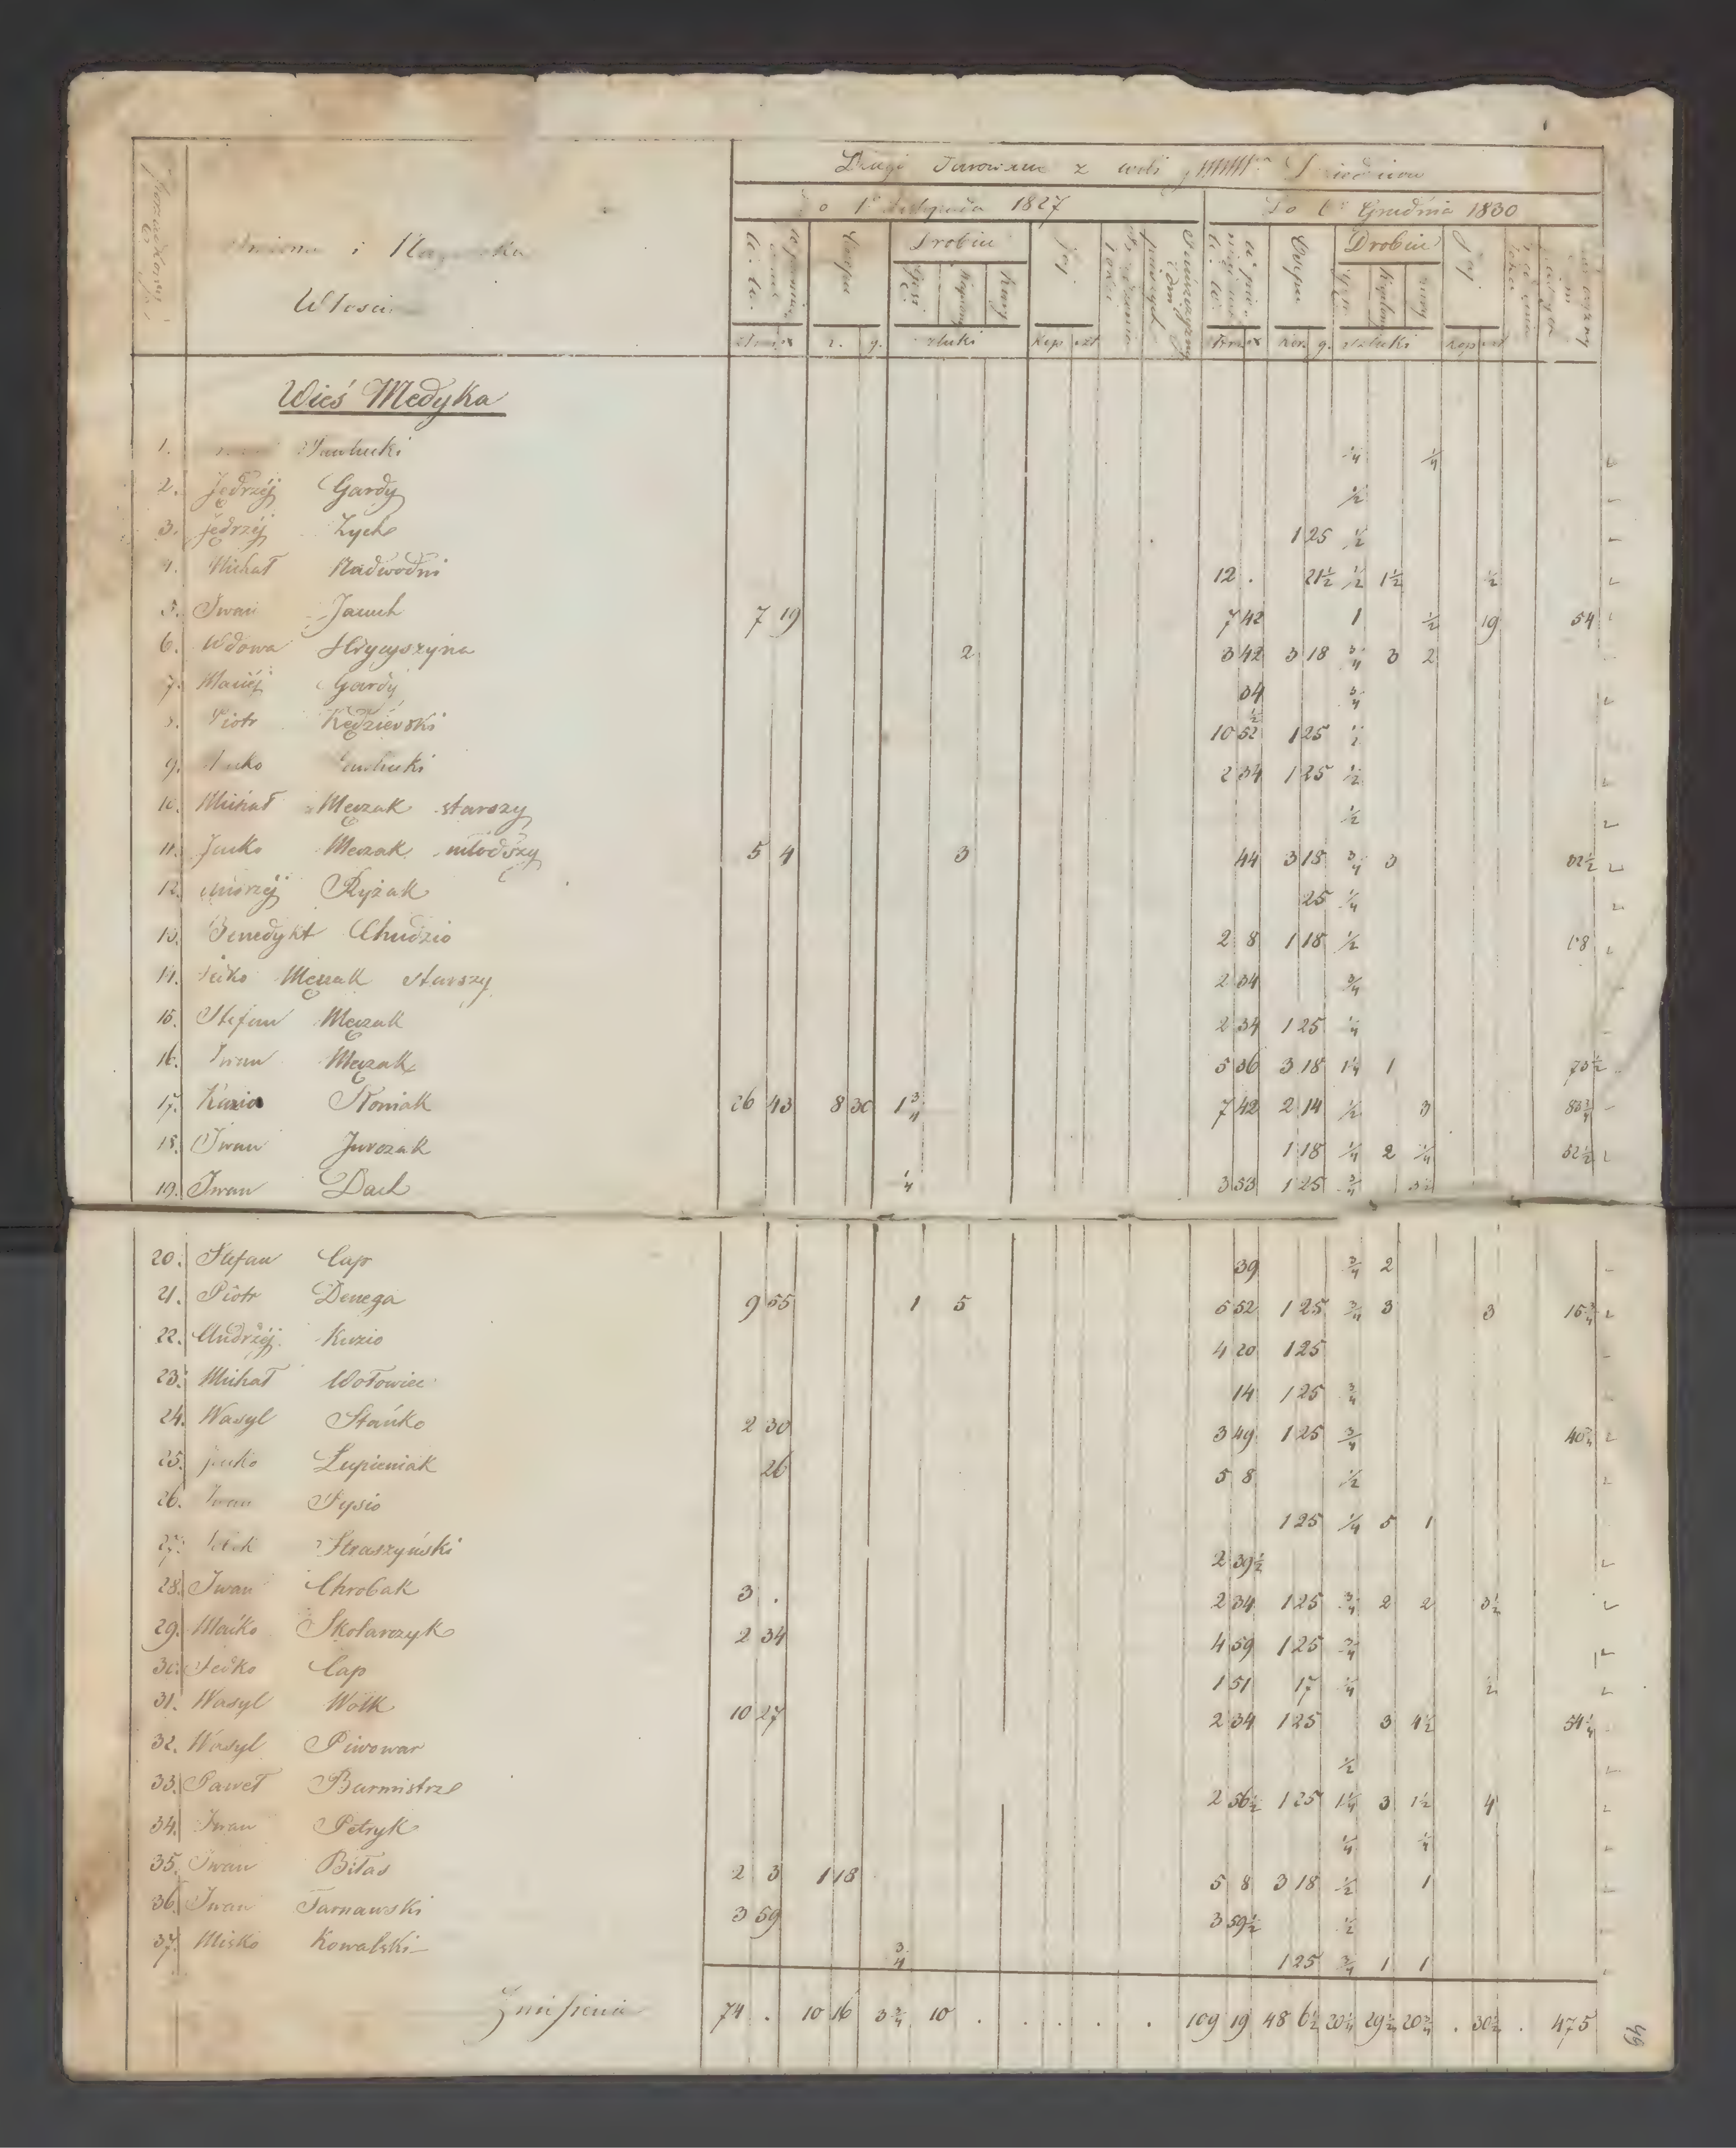 Długi Darowane z
1827
Do Grudnia 1830
i
Włości
Drobiu
Jaj
Drobiu
Jaj
sztuki
kop szt
kor. g. sztuki
Wieś Medyka
1. Pawlucki 1/4 1/4
2. Jędrzéj Gardy 1/2
3. Jędrzéj Zych 1 25 1/2
4. Michał Nadwodni 12 . 21 1/2 1/2 1 1/2 1/2
5. Iwan Jacuch 7 19 7 42 1 1/2 19 54
6. Wdowa Hrycyszyna 2 3 42 3 18 3/4 3 2
7. Maciéj Gardy 34 3/4
8. Piotr Kędzierski 10 52 1/2 1 25 1/2
9. 2 34 1 25 1/2
10. Michał Męczak starszy 1/2
11. Jacko Męczak młodszy 5 4 3 44 3 18 3/4 3 32 1/2
12. Andrzéj Ryżak 25 1/4
13. Benedykt Chudzio 2 8 1 18 1/2
14. Męczak starszy 2 34 3/4
15. Stefan Męczak 2 34 1 25 1/4
16. Iwan Męczak 5 36 3 18 1 1/4 1 73 1/2
17. Kuzio Koniak 26 43 8 30 1 3/4 7 42 2 14 1/2 3 83 3/4
18. Iwan Jurczak 1 18 1/4 2 1/4 52 1/2
19. Iwan Dach 1/4 3 53 1 25 3/4
20. Stefan Cap 39 3/4 2
21. Piotr Denega 9 55 1 5 5 52 1 25 3/4 3 3 15 3/4
22. Andrzéj Kuzio 4 20 1 25
23. Michał Wołowiec 14 1 25 3/4
24. Wasyl Stańko 2 30 3 49 1 25 3/4
25. Łupieniak 26 5 8 1/2
26. Iwan Fysio 1 25 1/4 5 1
27. Straszyński 2 39 1/2
28. Iwan Chrobak 3 . 2 34 1 25 3/4 2 2 3 1/2
29. Maćko Skolarczyk 2 34 4 59 1 25 3/4
30. Fedko Cap 1 51 17 1/4 1/2
31. Wasyl Wołk 10 27 2 34 1 25 3 4 1/2 54 1/4
32. Wasyl Piwowar 1/2
33. Paweł Burmistrz 2 56 1/2 1 25 1 1/4 3 1 1/2 4
34. Iwan Petryk 1/4 1/4
35. Iwan Biłas 2 3 1 18 5 8 3 18 1/2 1
36. Iwan Tarnawski 3 59 3 59 1/2 1/2
37. Misko Kowalski 3/4 1 25 3/4 1 1
74 . 10 16 3 3/4 10 . . . . . 109 19 48 6 1/2 20 1/4 29 1/2 20 3/4 . 30 1/2 . 475
49